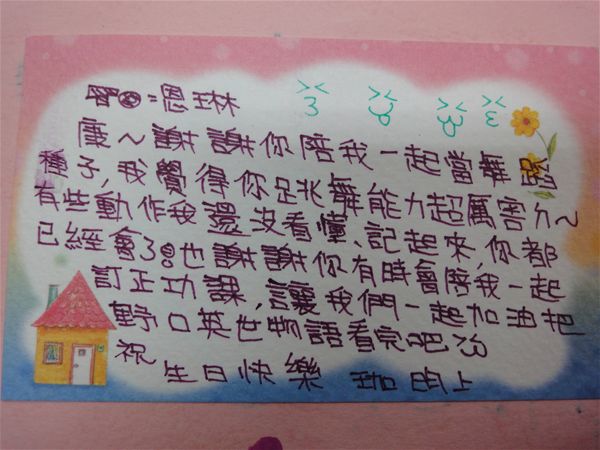 恩琳
謝謝你陪我一起當舞
子,我覺得你跳舞能力超厲害ㄉ~
有些動作我還沒看懂、記起來,你都
已經會了。也謝謝你有時會陪我一起
訂正功課,讓我們一起加油把
野口英世物語看完吧
祝
生日快樂 上